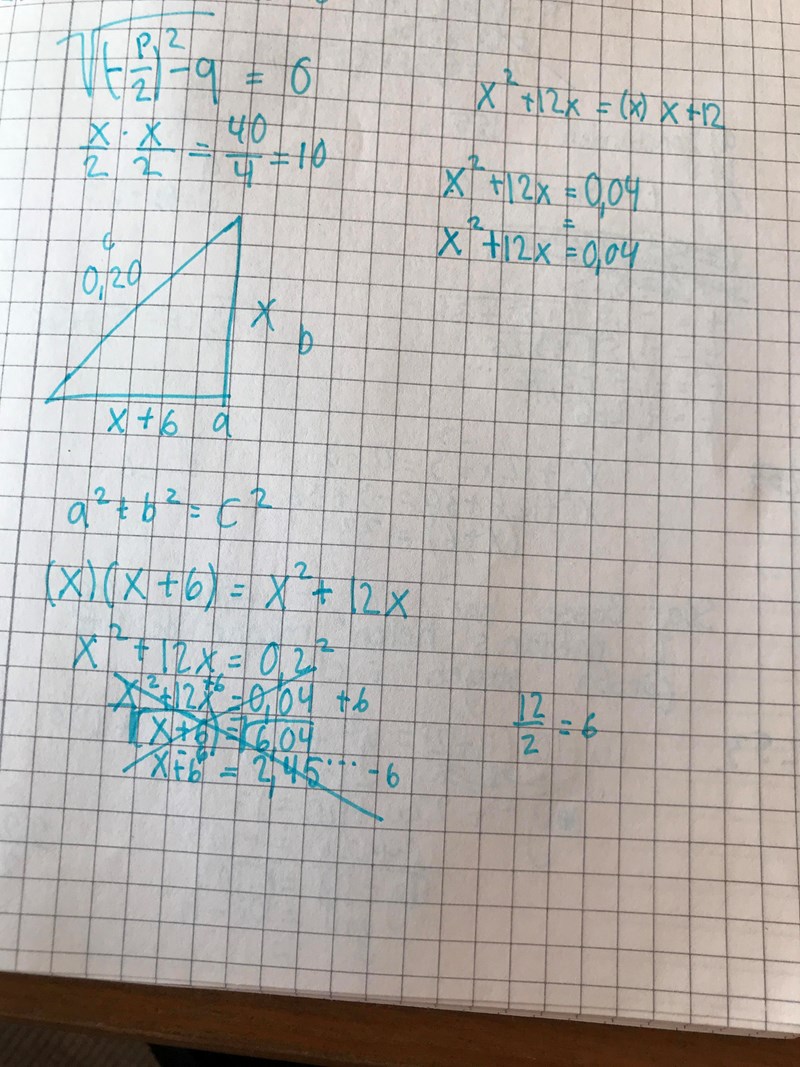 √(-p/2)² - q = 6
x/2 · x/2 = 40/4 = 10
x² + 12x = (x) x + 12
x² + 12x = 0,04
=
x² + 12x = 0,04
c
0,20
x
b
x + 6 a
a² + b² = c²
(x)(x + 6) = x² + 12x
x² + 12x = 0,2²
x² + 12x +6 = 0,04 + 6
√x + 6 = √6,04
x + 6 -6 = 2,45... - 6
12/2 = 6